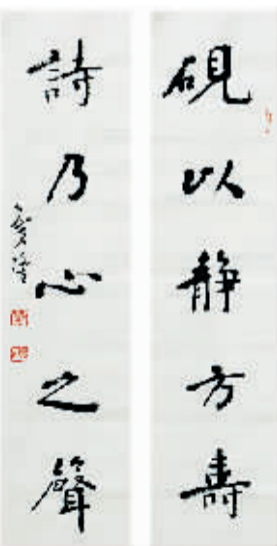 硯以靜方壽
詩乃心之聲